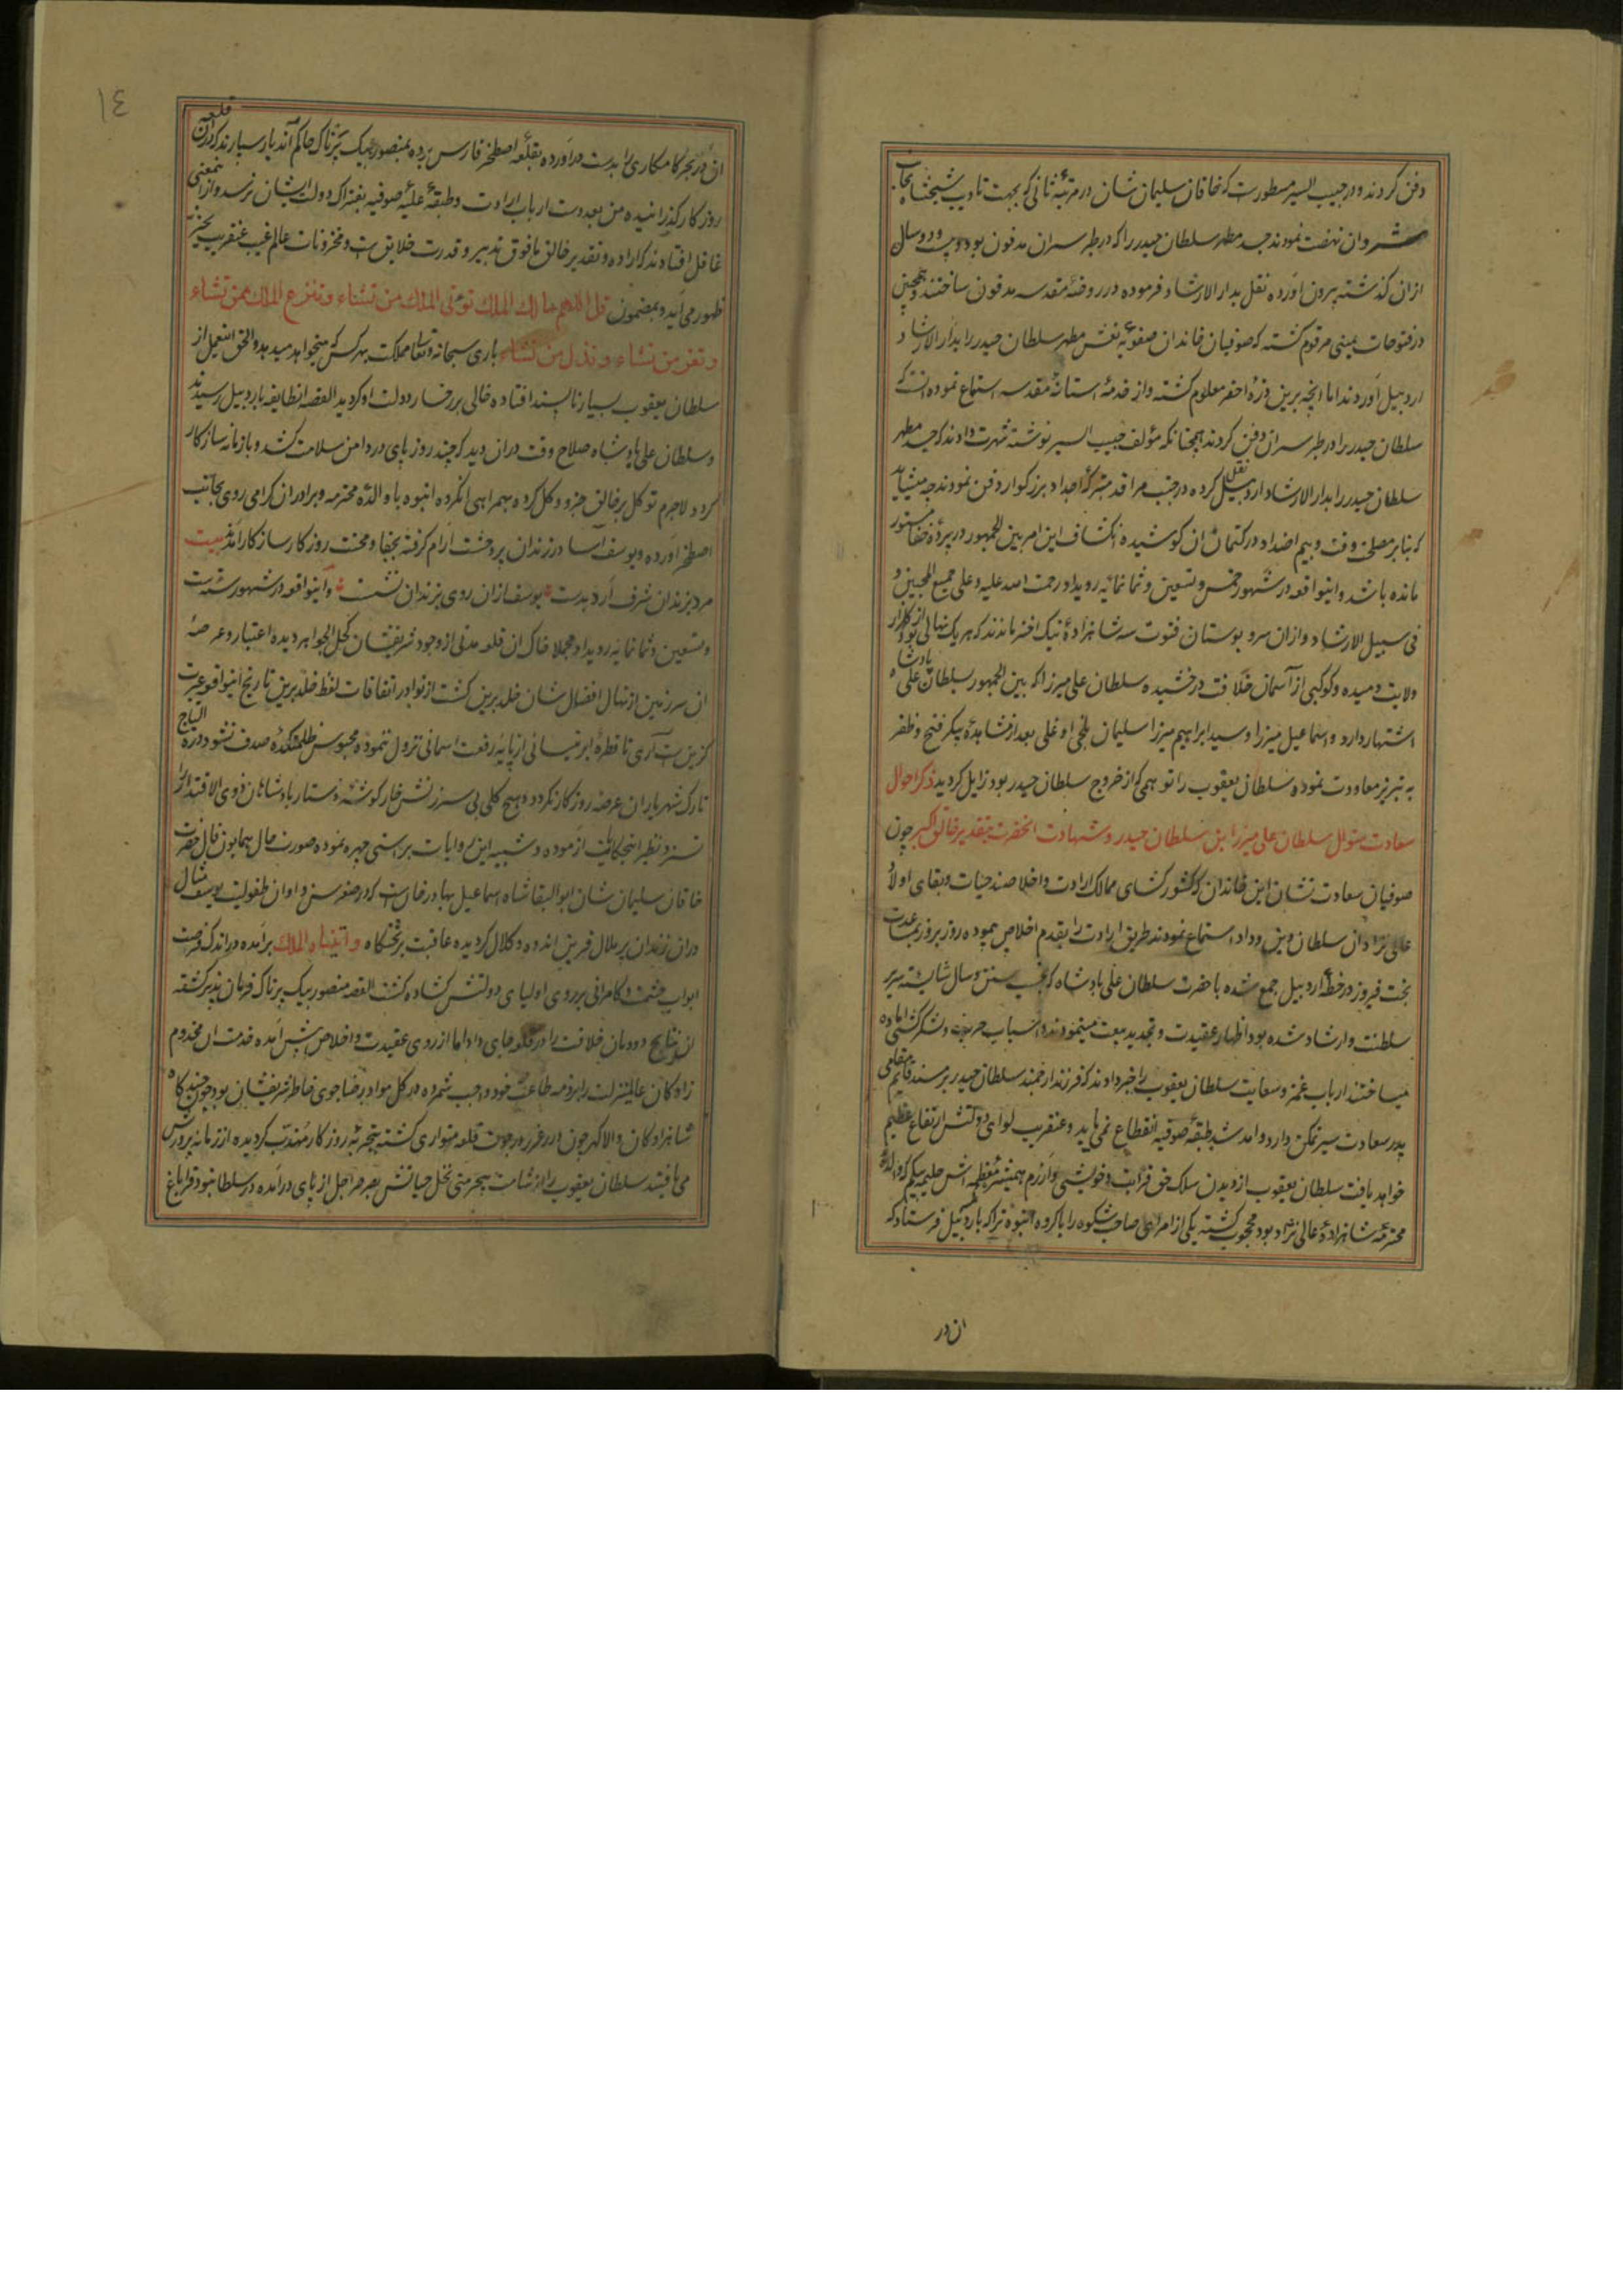 دفن کردند و در حبیب السیر مسطورست که خاقان سلیمان شان در مرتبهٔ ثانی که بجهت تادیب شیخشاه بجانب
شروان نهضت نمودند جسد مطهر سلطان حیدر را که در طبرسران مدفون بود و بیست و دو سال
ازان گذشته بیرون آورده نقل بدار الارشاد فرموده در روضهٔ مقدسه مدفون ساختند و همچنین
در فتوحات یمینی مرقوم گشته که صوفیان خاندان صفویه نعش مطهر سلطان حیدر را بدار الارشاد
اردبیل آوردند اما آنچه برین ذرهٔ احقر معلوم گشته و از خدمهٔ آستانهٔ مقدسه استماع نموده آنست که
سلطان حیدر را در طبرسران دفن کردند همچنانکه مؤلف حبیب السیر نوشته شهرت دادند که جسد مطهر
سلطان حیدر را بدار الارشاد اردبیل نقل کرده در جنب مراقد متبرکهٔ اجداد بزرگوار دفن نمودند چه میشاید
که بنابر مصلحت وقت و بیم اضداد در کتمان آن کوشیده انکشاف این امر بین الجمهور در پردهٔ خفا مستور
مانده باشد و اینواقعه در شهور خمس و تسعین و ثمانمائه رویداد رحمت الله علیه و علی جمیع المحبین و
فی سبیل الارشاد و ازان سرو بوستان فتوت سه شاهزادهٔ نیک اختر ماندند که هر یک نهالی بود از گلزار
ولایت دمیده و کوکبی از آسمان خلافت درخشیده سلطان علی میرزا که بین الجمهور بسلطان علی پادشاه
اشتهار دارد و اسماعیل میرزا و سید ابراهیم میرزا سلیمان بیجن اوغلی بعد از مشاهدهٔ پیکر فتح و ظفر
به تبریز معاودت نموده سلطان یعقوب را توهمی که از خروج سلطان حیدر بود زایل گردید ذکر احوال
سعادت منوال سلطان علی میرزا بن سلطان حیدر و شهادت انحضرت بتقدیر خالق اکبر چون
صوفیان سعادت نشان این خاندان که کشور گشای ممالک ارادت و اخلاصند حیات و بقای اولاد
علی نژاد آن سلطان دین و داد استماع نمودند طریق ارادت را بقدم اخلاص پیموده روز بروز بمساعدت
بخت فیروز در خطهٔ اردبیل جمع شده با حضرت سلطان علی پادشاه که بحسب سن و سال شایسته سریر
سلطنت و ارشاد شده بود اظهار عقیدت و تجدید بیعت مینمودند و اسباب حرب و لشکرکشی آماده
میساختند ارباب غمز و سعایت سلطان یعقوب را خبر دادند که فرزند ارجمند سلطان حیدر بر مسند قایم مقامی
پدر سعادت سیر تمکن دارد و آمد شد طبقهٔ صوفیه انقطاع نمی یابد و عنقریب لوای دولتش ارتفاع عظیم
خواهد یافت سلطان یعقوب از دیدن سلک حق قرابت و خویشی و آزرم همشیرهٔ معظمه اش حلیمه بیگم که والدهٔ
محترمهٔ شاهزادهٔ عالی نژاد بود محجوب گشته یکی از امرای صاحب شکوه را با گروه انبوه تراکمه باردبیل فرستاد که
ان در
١٤
ان در بحر کامکاری را بدست درآورده بقلعه اصطخر فارس برده بمنصور بیک پرناک حاکم آندیار سپارند که دران قلعه
روزگار گذرانیده من بعد دست ارباب ارادت و طبقهٔ علیهٔ صوفیه بفتراک دولت ایشان نرسد و از اینمعنی
غافل افتادند که اراده و تقدیر خالق مافوق تدبیر و قدرت خلایق است و مخزونات عالم غیب عنقریب بحیز
ظهور می آید و بمضمون قل اللهم مالک الملک توتی الملک من تشاء و تنزع الملک ممن تشاء
و تعز من تشاء و تذل من تشاء باری سبحانه و تعالی مملکت بهر کس که میخواهد میدهد و الحق اینعمل از
سلطان یعقوب بسیار ناپسند افتاده خالی بر رخسار دولت او گردید القصه انطایفه باردبیل رسیدند
و سلطان علی پادشاه صلاح وقت دران دید که چند روز پای در دامن سلامت کشد و با زمانه سازگار
گردد لاجرم توکل بر خالق جزو و کل کرده بهمراهی انگروه انبوه با والدهٔ محترمه و برادران گرامی روی بجانب
اصطخر آورده و یوسف آسا در زندان پر وحشت آرام گرفته بجفا و محنت روزگار سازگار آمد بیت
مرد بزندان شرف آرد بدست یوسف ازان روی بزندان نشست و اینواقعه در شهور ست
و تسعین و ثمانمائه رویداد مجملا خاک ان قلعه مدتی از وجود شریفشان کحل الجواهر دیده اعتبار و عرصهٔ
ان سرزمین از نهال افضال شان خلد برین گشت از نوادر اتفاقات لفظ خلد برین تاریخ اینواقعه عبرت
گزین است آری تا قطرهٔ ابر نیسانی از پایه رفعت آسمانی نزول ننموده محبوس ظلمتکدهٔ صدف نشود درة التاج
تارک شهریاران عرصهٔ روزگار نگردد و هیچ گلی بی سرزنش خار گوشهٔ دستار پادشاهان ذوی الاقتدار را
نسزد نظیر اینحکایت آزموده و شبیه این روایات براستی چهره نموده صورت حال همایون فال حضرت
خاقان سلیمان شان ابو البقا شاه اسماعیل بهادر خان است که در صغر سن و اوان طفولیت یوسف مثال
دران زندان پر ملال قرین اندوه و کلال گردیده عاقبت بر تختگاه و اتیناه الملک برآمده در اندک فرصت
ابواب حشمت و کامرانی بر روی اولیای دولتش گشاده گشت القصه منصور بیک پرناک فرمان پذیر گشته
ان نتایج دودمان خلافت را در قلعه جای داد اما از روی عقیدت و اخلاص پیش آمده خدمت ان مخدوم
زادگان عالیمنزلت را بر ذمه طاعت خود واجب شمرده در کل مواد رضاجوی خاطر شریفشان بود چون چندگاه
شاهزادگان والا گهر چون درر غرر در درون قلعه متواری گشته بتجربهٔ روزگار مهذب گردیده از زمانه پرورش
می یافتند سلطان یعقوب را از شامت بیحرمتی نخل حیاتش بصرصر اجل از پای درآمده در سلطانبود قراباغ